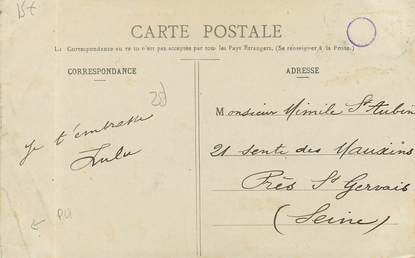 15+
CARTE POSTALE
La Correspondance au recto n'est pas acceptée par tous les Pays Étrangers. (Se renseigner à la Poste.)
CORRESPONDANCE
ADRESSE
20
Je t'embrasse
Lulu
Monsieur Mimile St Aubin
21 sente des
Près St Gervais
(Seine)